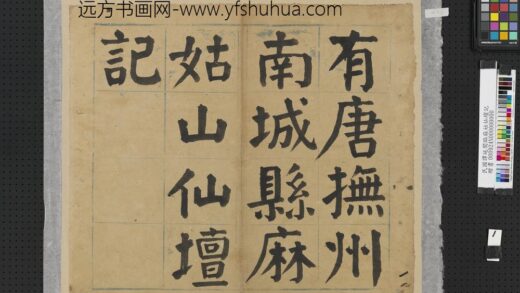 远方书画网-www.yfshuhua.com
有唐撫州
南城縣麻
姑山仙壇
記